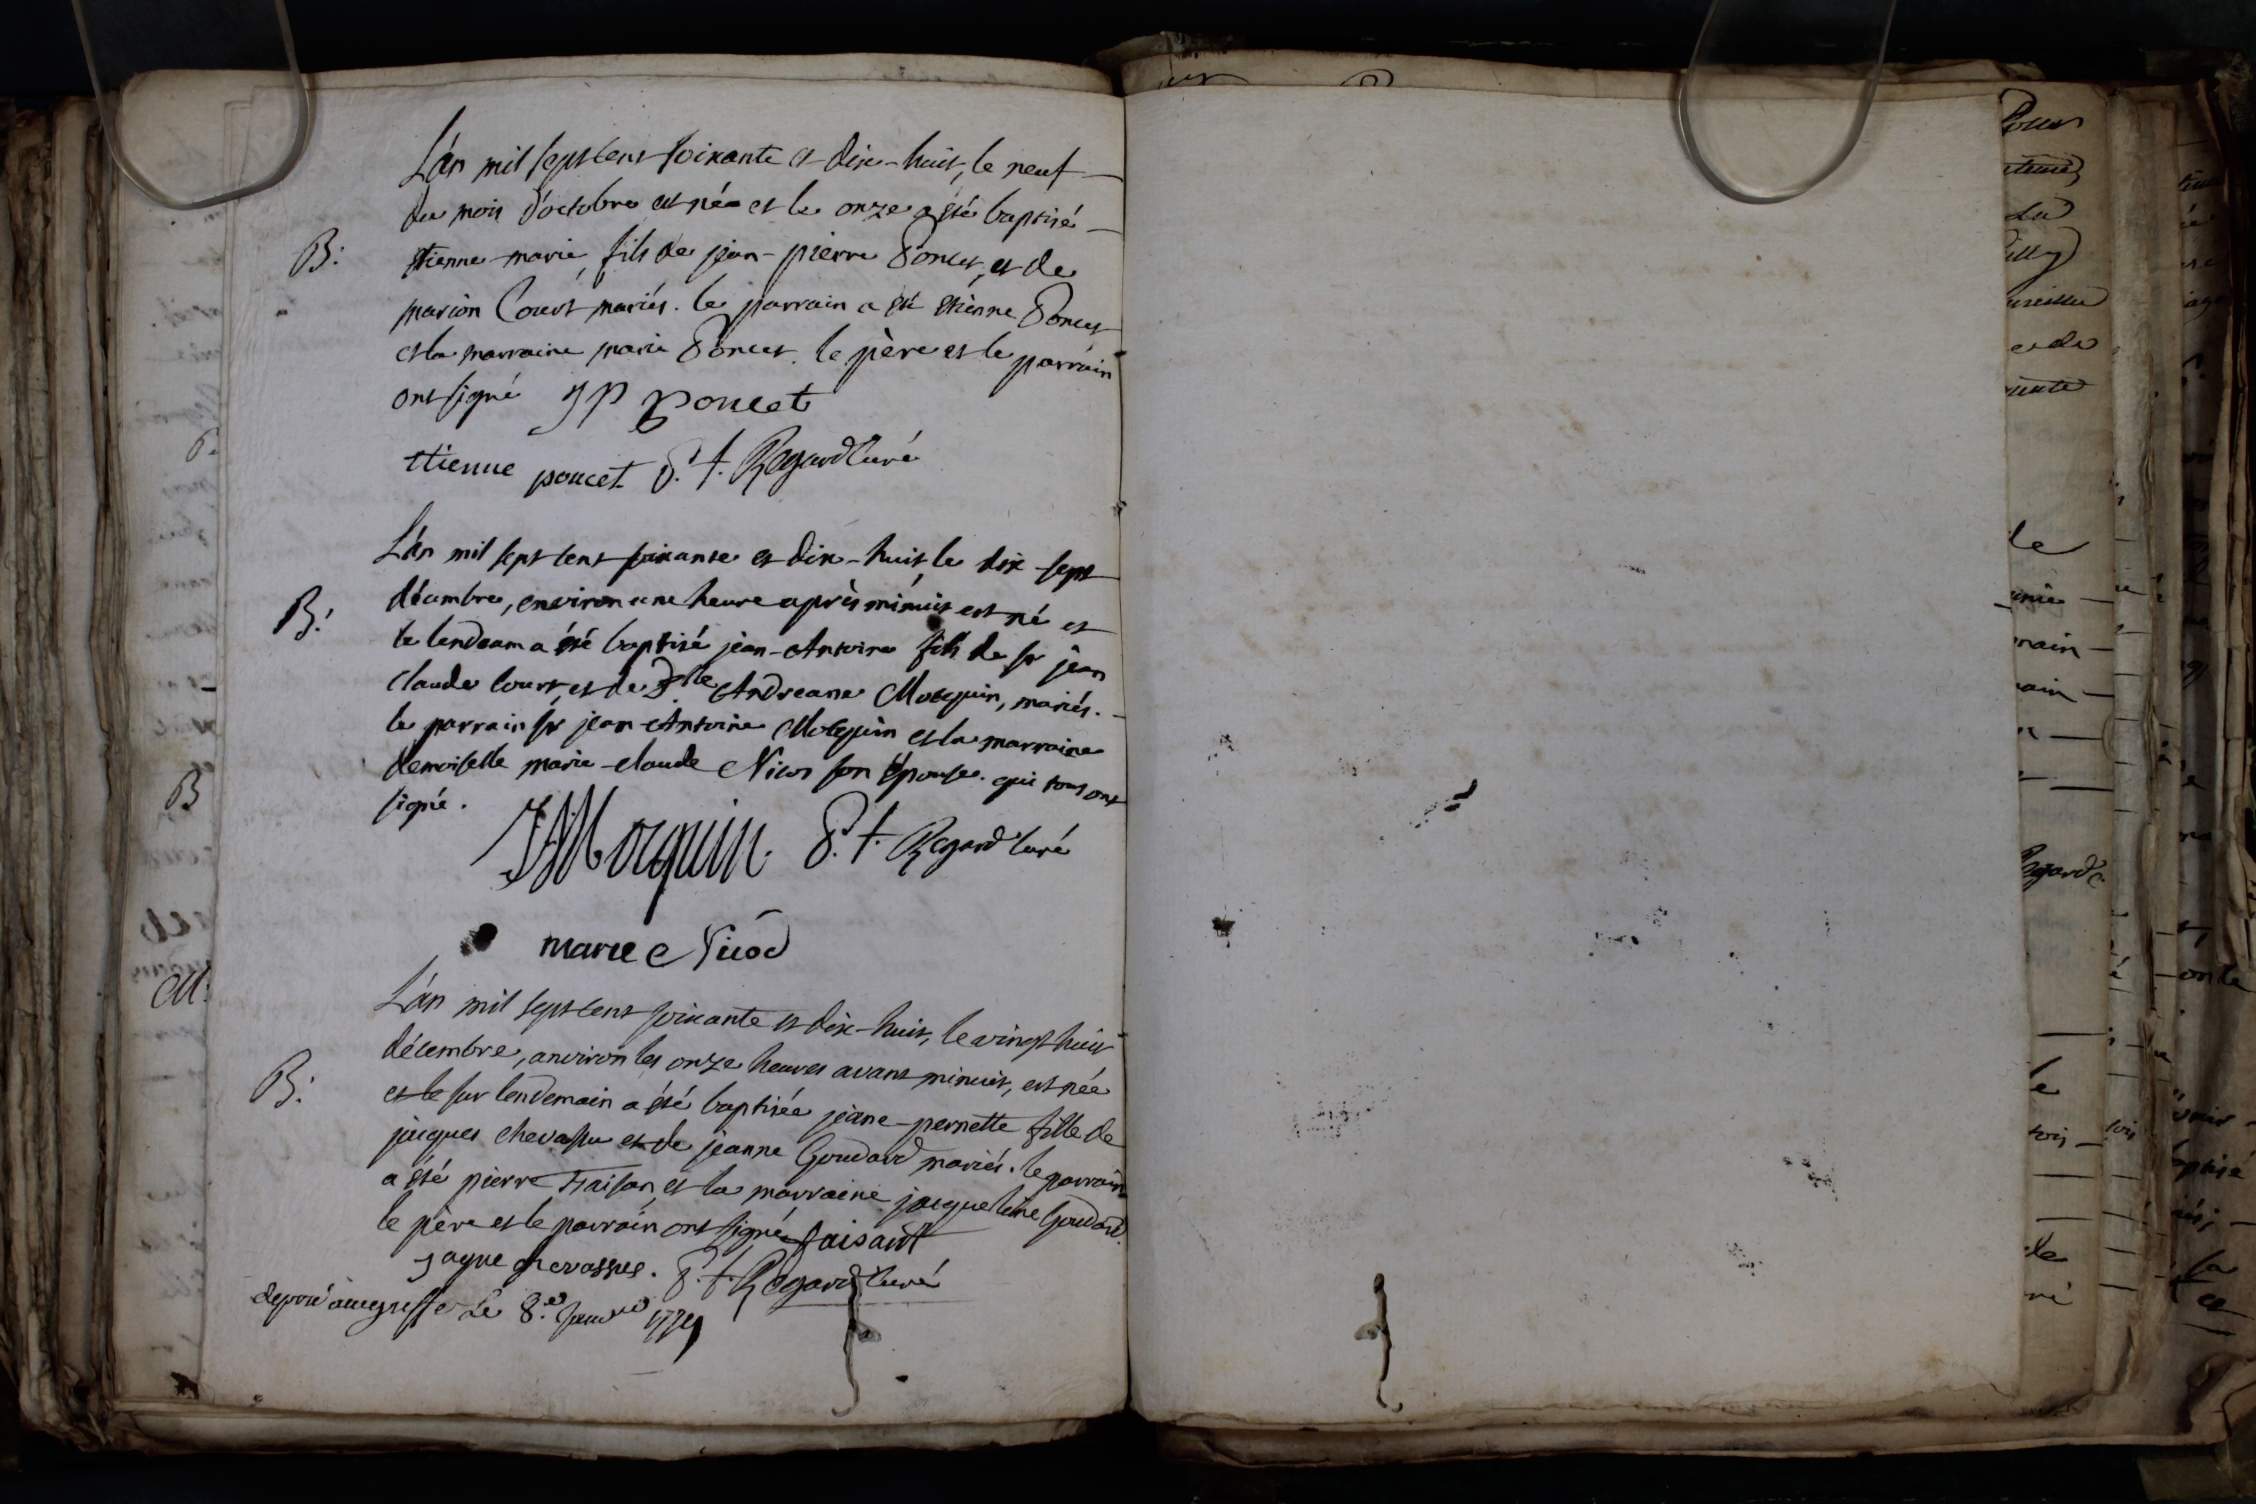 L'an mil sept cent soixante et dix-huit, le neuf
du mois d'octobre est née et le onze a été baptisé
B: etienne-marie, fils de jean-pierre Poncet, et de
marion Court mariés. le parrain a été etiènne Poncet
et la marraine marie Poncet. le père et le parrain
ont signé JP poncet
ttienne poncet P. f. Regard curé
L'an mil sept cent soixante et dix-huit le dix-sept
décembre, environ une heure après minuit est né et
B: le lendeam a été baptisé jean-Antoine fils de sr jean
claude Court, et de Dlle Andreane Moequin, mariés.
le parrain sr jean-Antoine Moequin et la marraine
demoiselle marie-claude Nicos son épouse. qui tous ont
signé.
JAMoequin P. f. Regard curé
marie Nicod
L'an mil sept cent soixante et dix-huit, le vingt huit
décembre, anviron les onze heures avant minuit, est née
B: et le sur lendemain a été baptisée jeane-pernette fille de
jacques chevassu et de jeanne Goudard mariés. le parrain
a été pierre Faisan, et la marraine jacqueline Goudard.
le père et le parrain ont signé faisant
jaque chevassus. P. f. Regard curé
deposé au greffe Le 8.e Janvier 1779